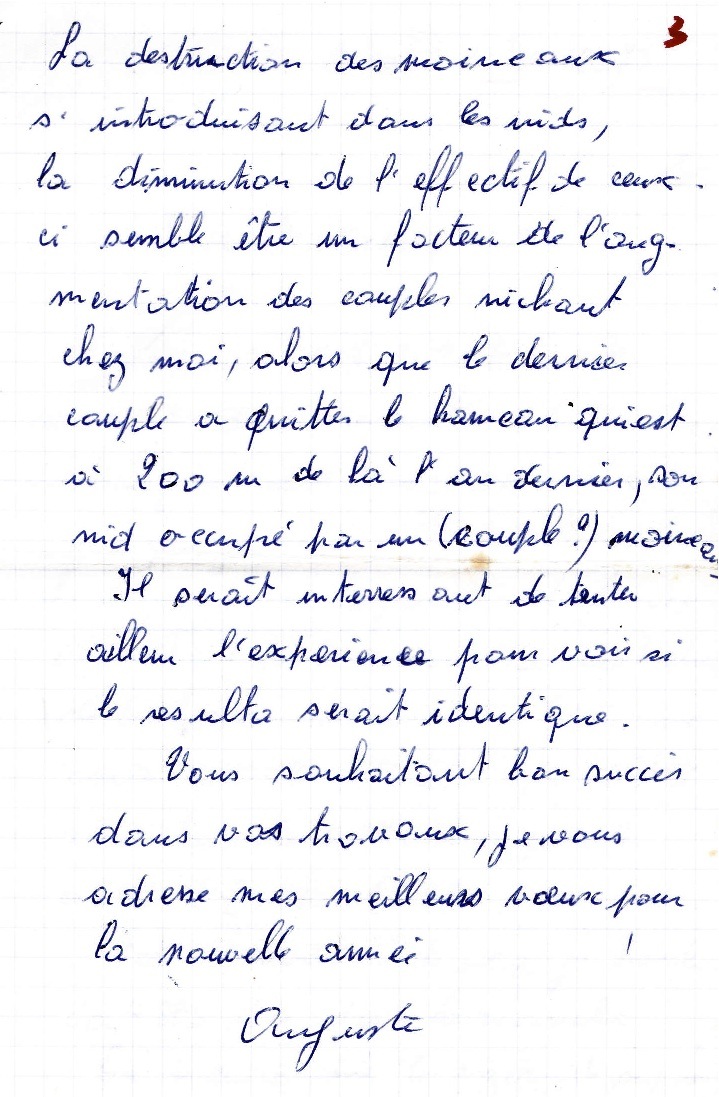 3
La destruction des moineaux
s'introduisant dans les nids,
la diminution de l'effectif de ceux-
ci semble être un facteur de l'aug-
mentation des couples nichant
chez moi, alors que le dernier
couple a quitter le hameau qui est
à 200 m de là l'an dernier, son
nid occupé par un (couple?) moineau
Il serait interressant de tenter
ailleur l'experience pour voir si
le resulta serait identique.
Vous souhaitant bon succès
dans vos travaux, je vous
adresse mes meilleurs vœux pour
la nouvelle année !
Auguste